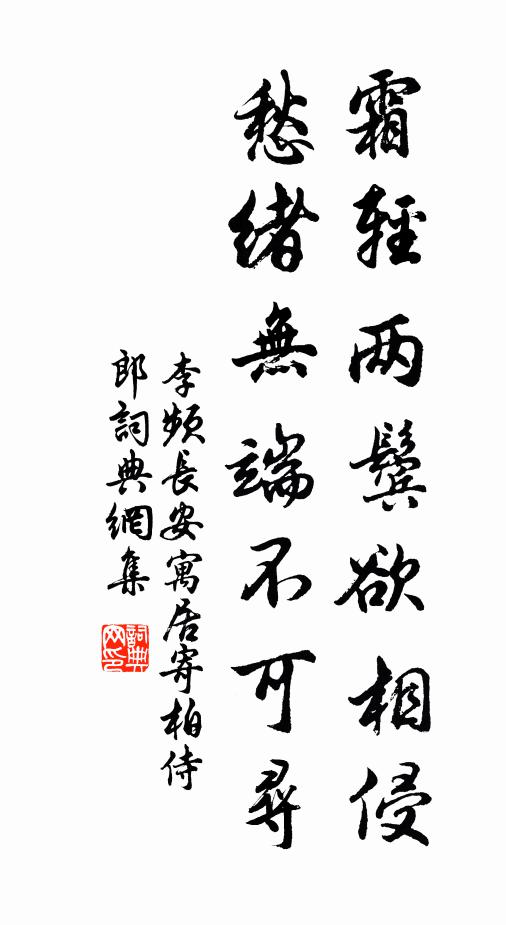 霜輕两鬢欲相侵
愁緒無端不可尋
李頻長安寓居寄柏侍
郎詞典網集
詞典
网印